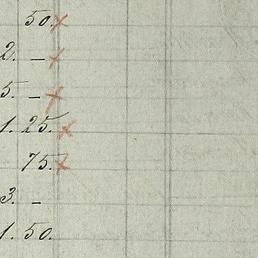 50.x
2. – x
5. – x
1. 25. x
75. x
3. –
1. 50.